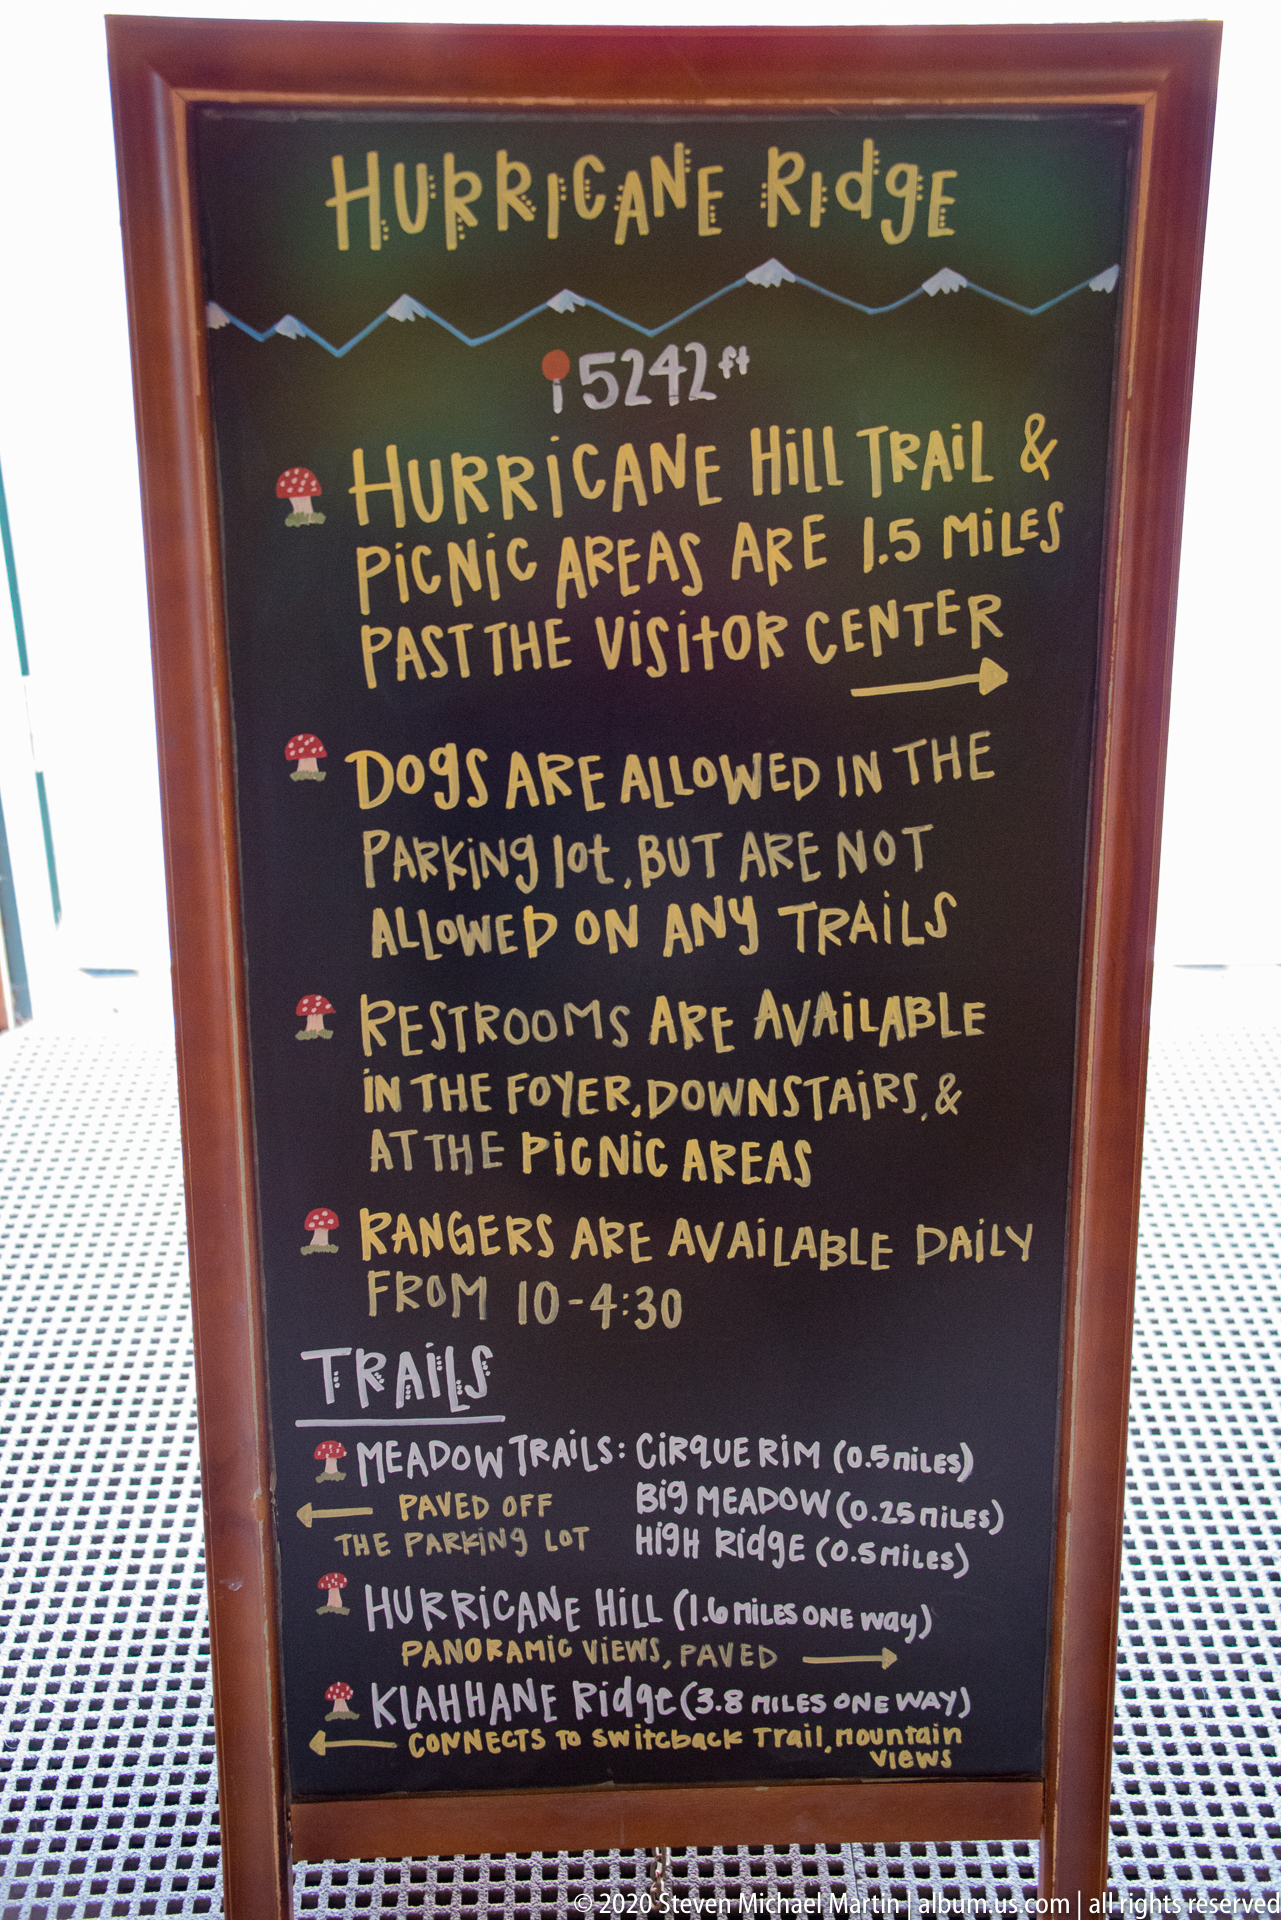 HURRICANE RIdgE
5242ft
HURRiCANE HiLL TRAiL &
PiCNiC AREAS ARE 1.5 MiLES
PAST THE ViSitOR CENTER
DOgS ARE ALLOWED IN THE
PARKiNg lot, BUT ARE NOT
ALLOWED ON ANY TRAiLS
RESTROOMS ARE AVAiLABLE
iN THE FOYER, DOWNSTAiRS, &
AT THE PiCNiC AREAS
RANGERS ARE AVAiLABLE DAiLY
FROM 10-4:30
TRAiLS
MEADOW TRAiLS: CiRQUE RiM (0.5 MiLES)
PAVED OFF BiG MEADOW (0.25 MiLES)
THE PARKiNg LOT HiGH RidgE (0.5 MiLES)
HURRiCANE HiLL (1.6 MiLES ONE WAY)
PANORAMiC ViEWS, PAVED
KLAHHANE RidgE (3.8 MiLES ONE WAY)
CONNECTS TO SWitCbaCK TRail, MOUNtaiN
ViEWS
© 2020 Steven Michael Martin | album.us.com | all rights reserved